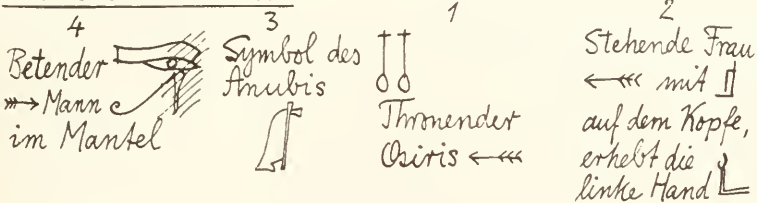 4
Betender
Mann
im Mantel
3
Symbol des
Anubis
1
Thronender
Osiris
2
Stehende Frau
mit
auf dem Kopfe,
erhebt die
linke Hand